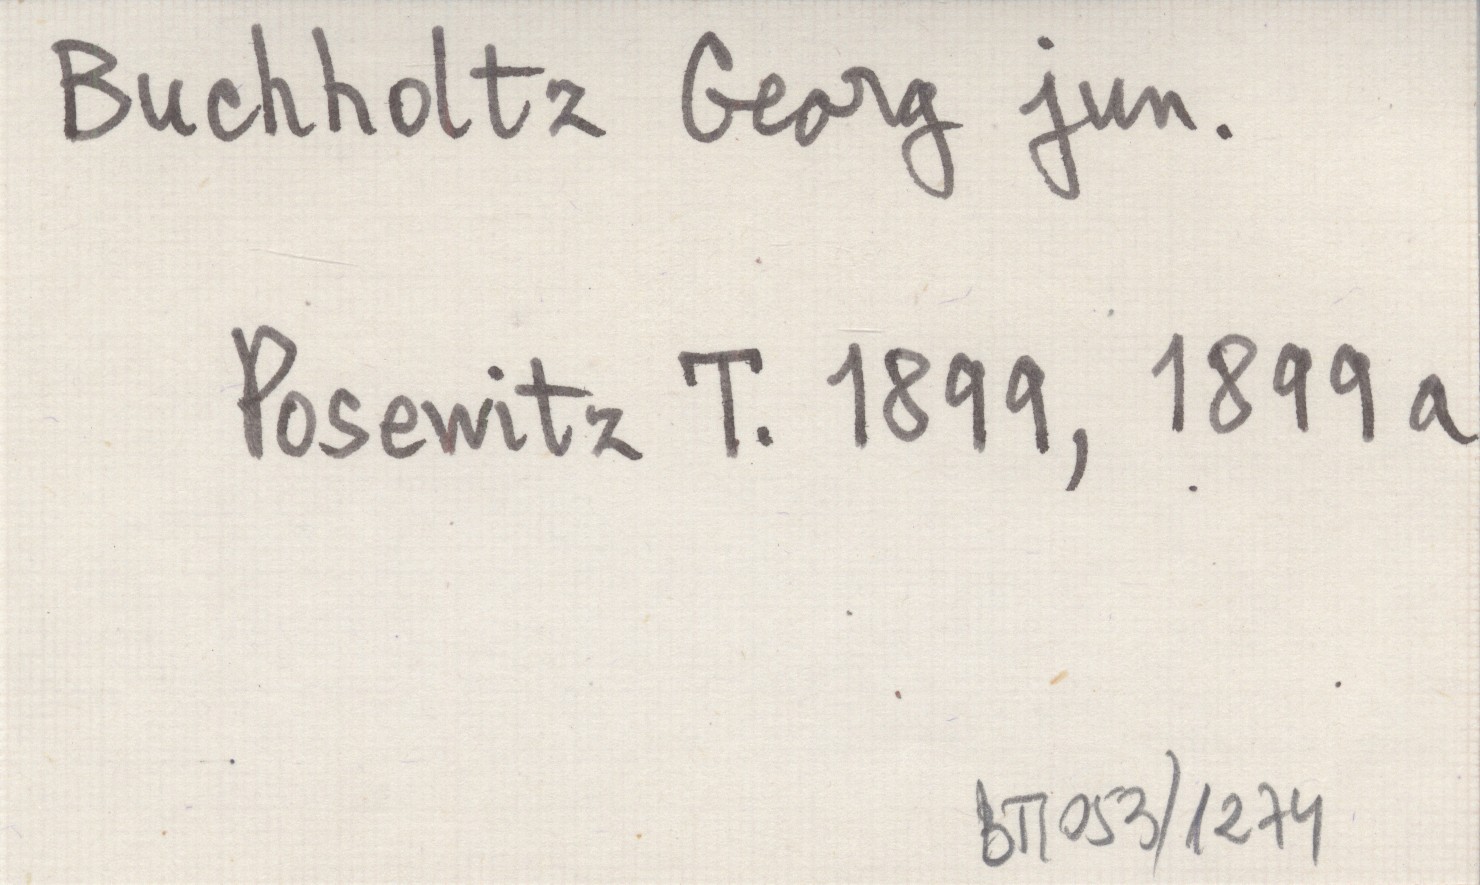 Buchholtz Georg jun.
Posewitz T. 1899, 1899 a
БП053/1274